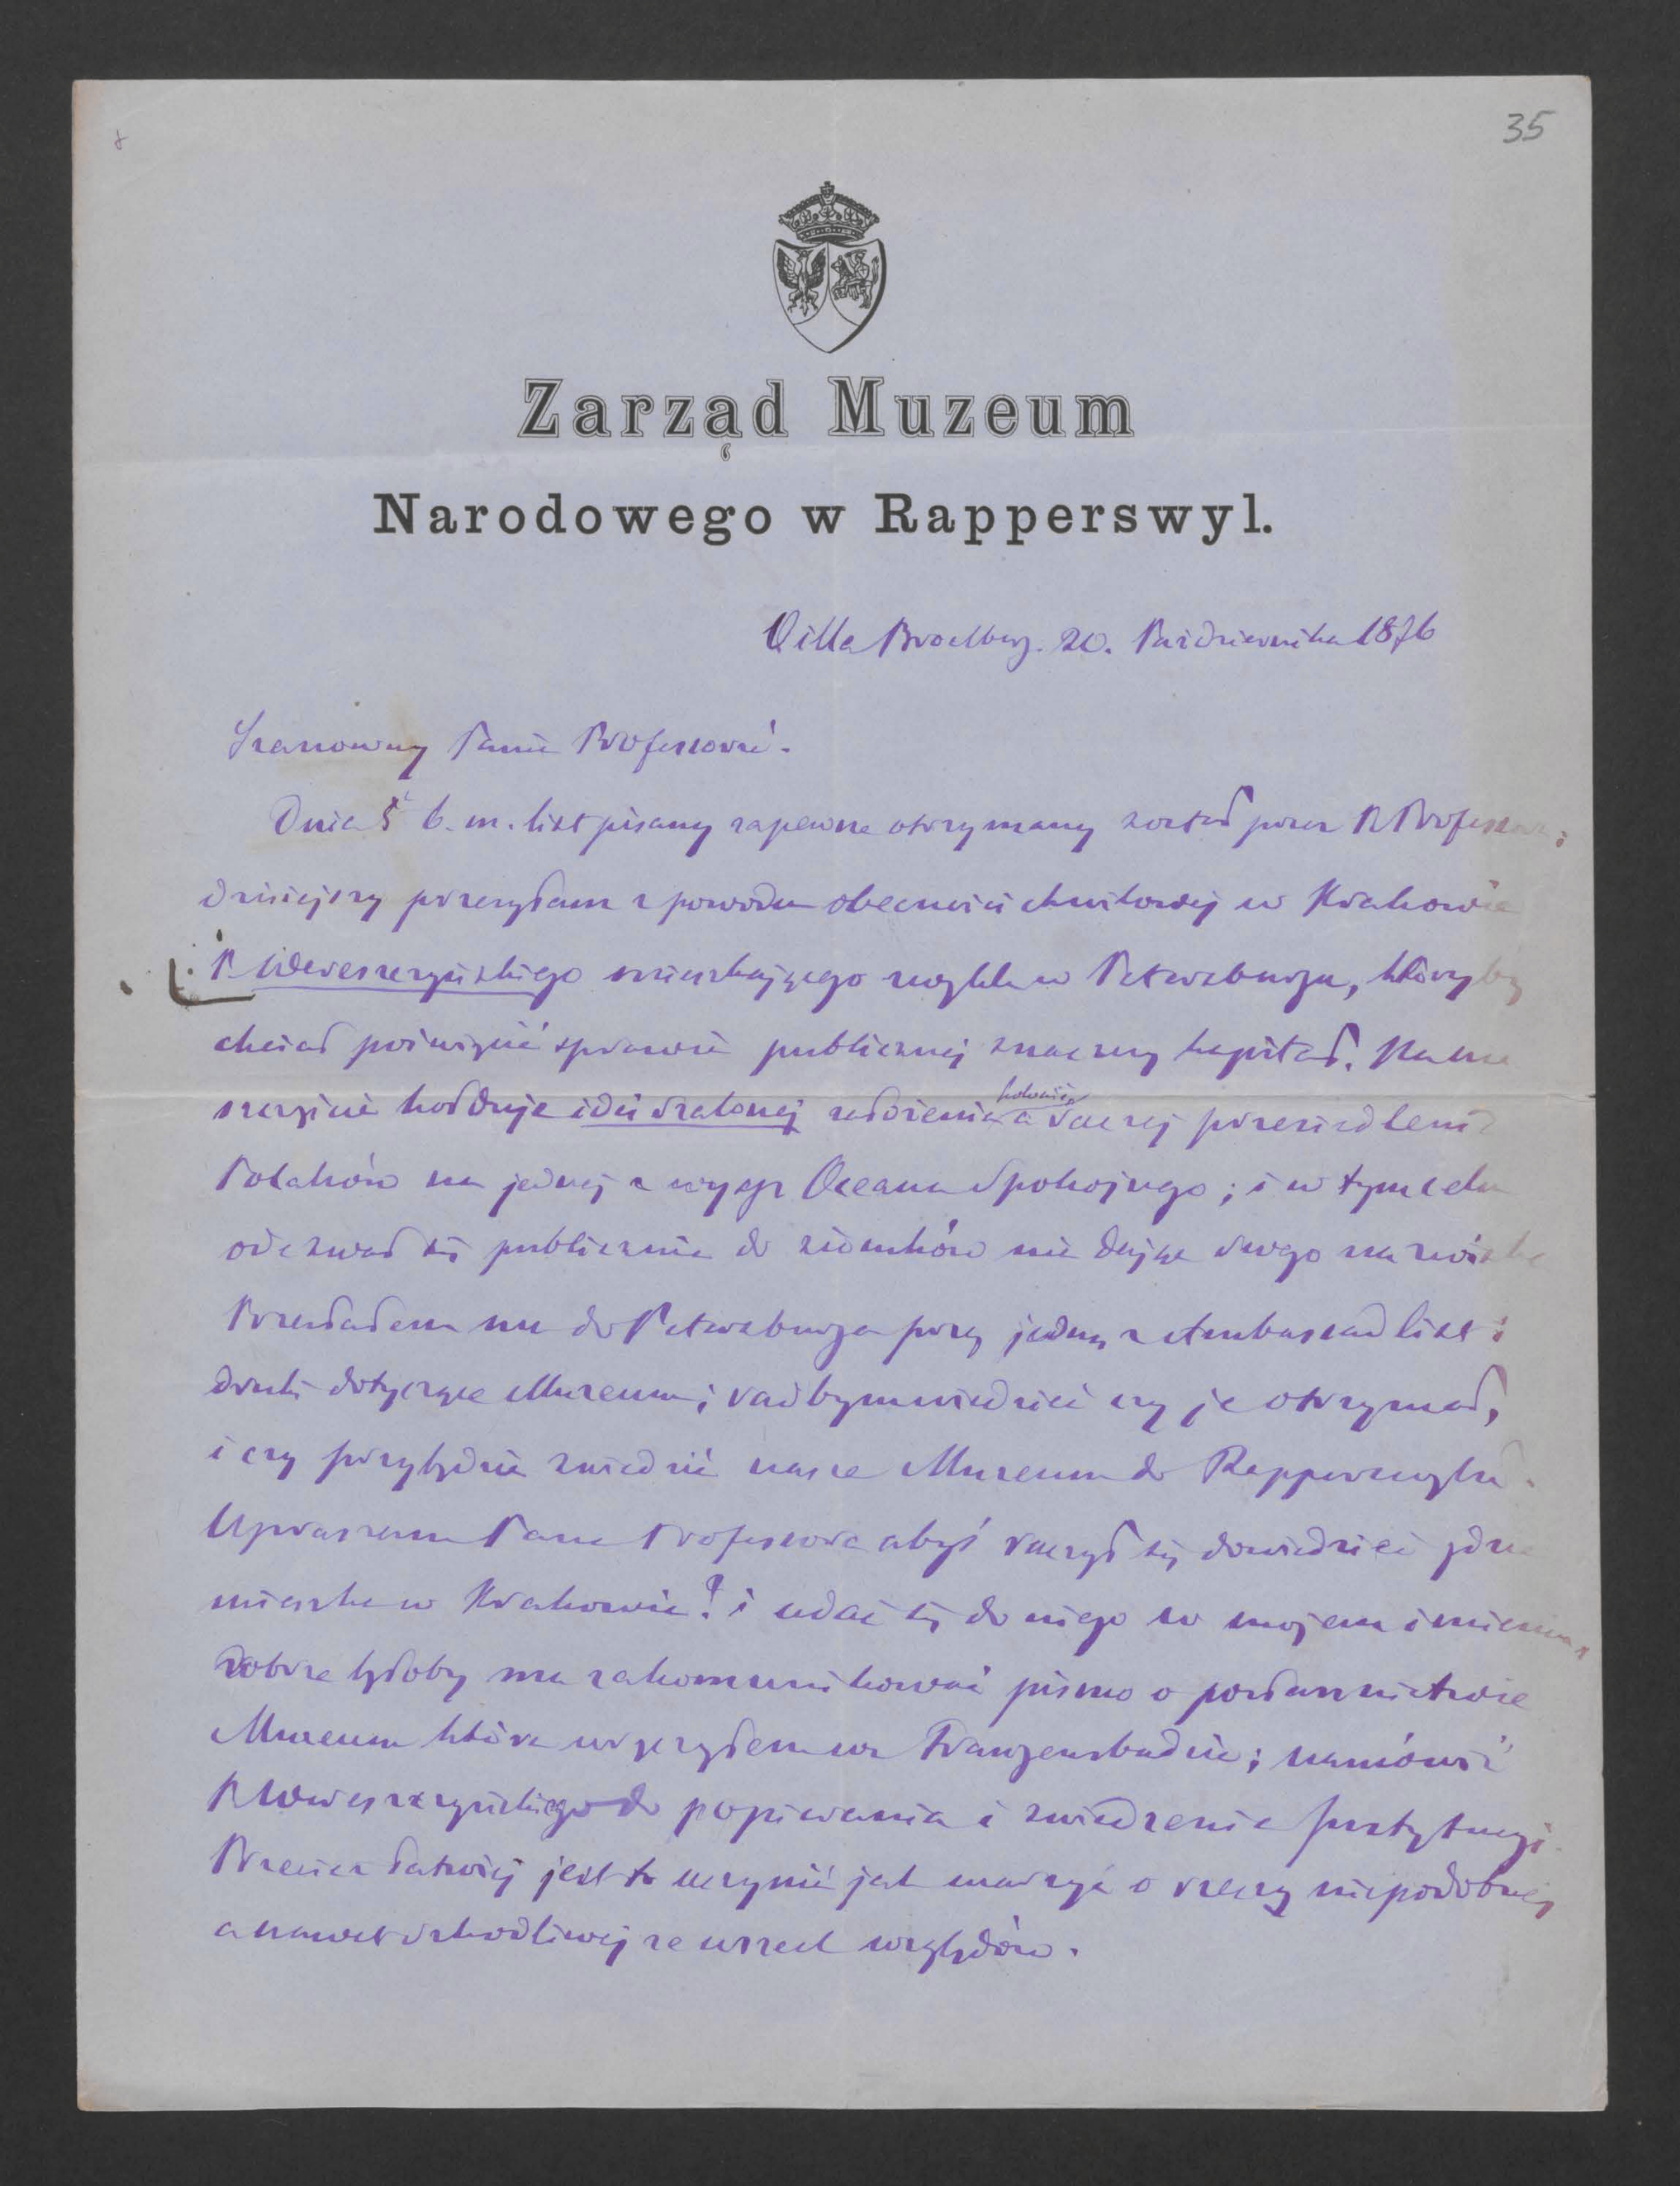 35
Zarząd Muzeum
Narodowego w Rapperswyl.
Villa Broelberg. 20. Października 1876
Szanowny Panie Professorze.
Dnia 5 b. m. list pisany zapewne otrzymany został przez P. Professora;
dzisiejszy przesyłam z powodu obecności chwilowej w Krakowie
P. Wereszczyńskiego mieszkającego zwykle w Petersburgu, któryby
chciał poświęcić sprawie publicznej znaczny kapitał. Na nie
szczęście hołduje idei szalonej założenia kolonii a raczej przesiedlenia
Polaków na jednej z wysp Oceanu Spokojnego; i w tym celu
odezwał się publicznie do ziomków nie dając swego nazwiska
Przesłałem mu do Petersburga przez jedną z Ambassad list i
druki dotyczące Muzeum; radbym wiedzieć czy je otrzymał,
i czy przybędzie zwiedzić nasze Muzeum do Rapperswylu.
Upraszam Pana Professora abyś raczył się dowiedzieć gdzie
mieszka w Krakowie? i udać się do niego w mojem imieniu,
dobrze byłoby mu zakomunikować pismo o posłannictwie
Muzeum które wręczyłem we Franzensbadzie; namówić
P. Wereszczyńskiego do popierania i zwiedzenia Instytucyi.
Przecież łatwiej jest to uczynić jak marzyć o rzeczy niepodobnej
a nawet szkodliwej ze wszech względów.